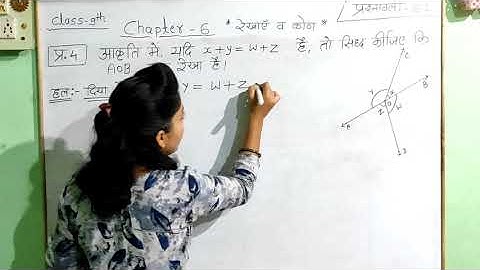 Class-9th
Chapter-6 * रेखाएँ व कोण *
प्रश्नावली
प्र.4 आकृति में, यदि x+y = w+z है, तो सिद्ध कीजिए कि
AOB रेखा है।
हल:- दिया y = w+z
C
B
y x
z w
A
D